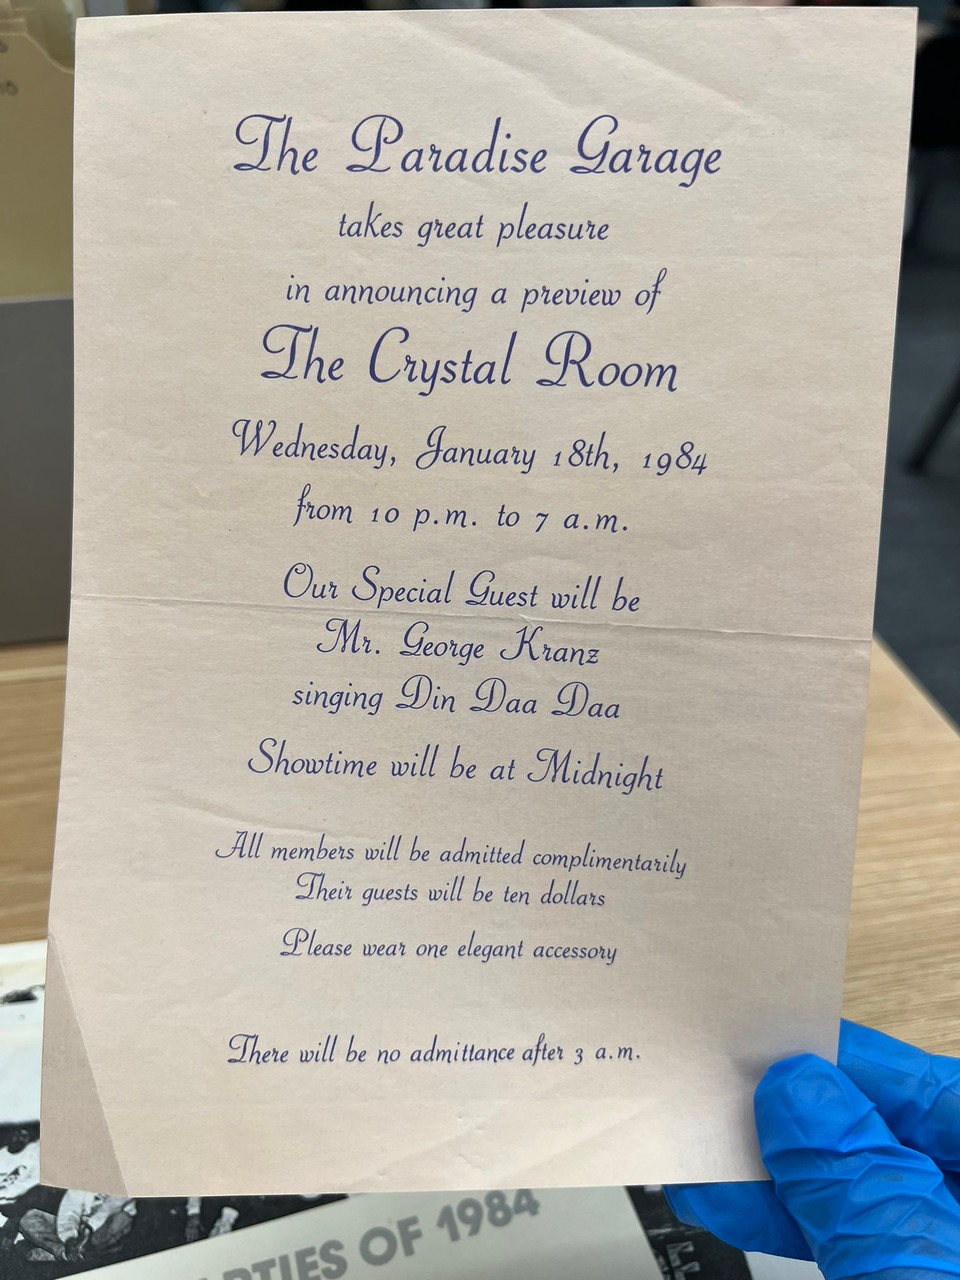 The Paradise Garage
takes great pleasure
in announcing a preview of
The Crystal Room
Wednesday, January 18th, 1984
from 10 p.m. to 7 a.m.
Our Special Guest will be
Mr. George Kranz
singing Din Daa Daa
Showtime will be at Midnight
All members will be admitted complimentarily
Their guests will be ten dollars
Please wear one elegant accessory
There will be no admittance after 3 a.m.
OF 1984